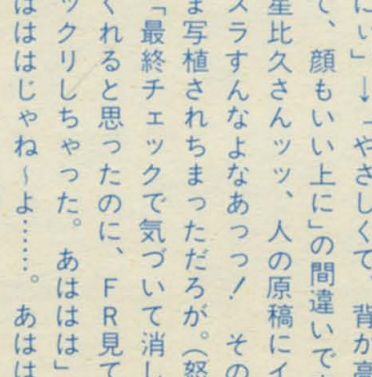 にぃ」→「やさしくて、背が高
て、顔もいい上に」の間違いで
星比久さんッッ、人の原稿にイ
スラすんなよなあっっ！ その
ま写植されちまっただろが。（怒
「最終チェックで気づいて消し
くれると思ったのに、ＦＲ見て
ックリしちゃった。あははは」
はははじゃね～よ……。あはは